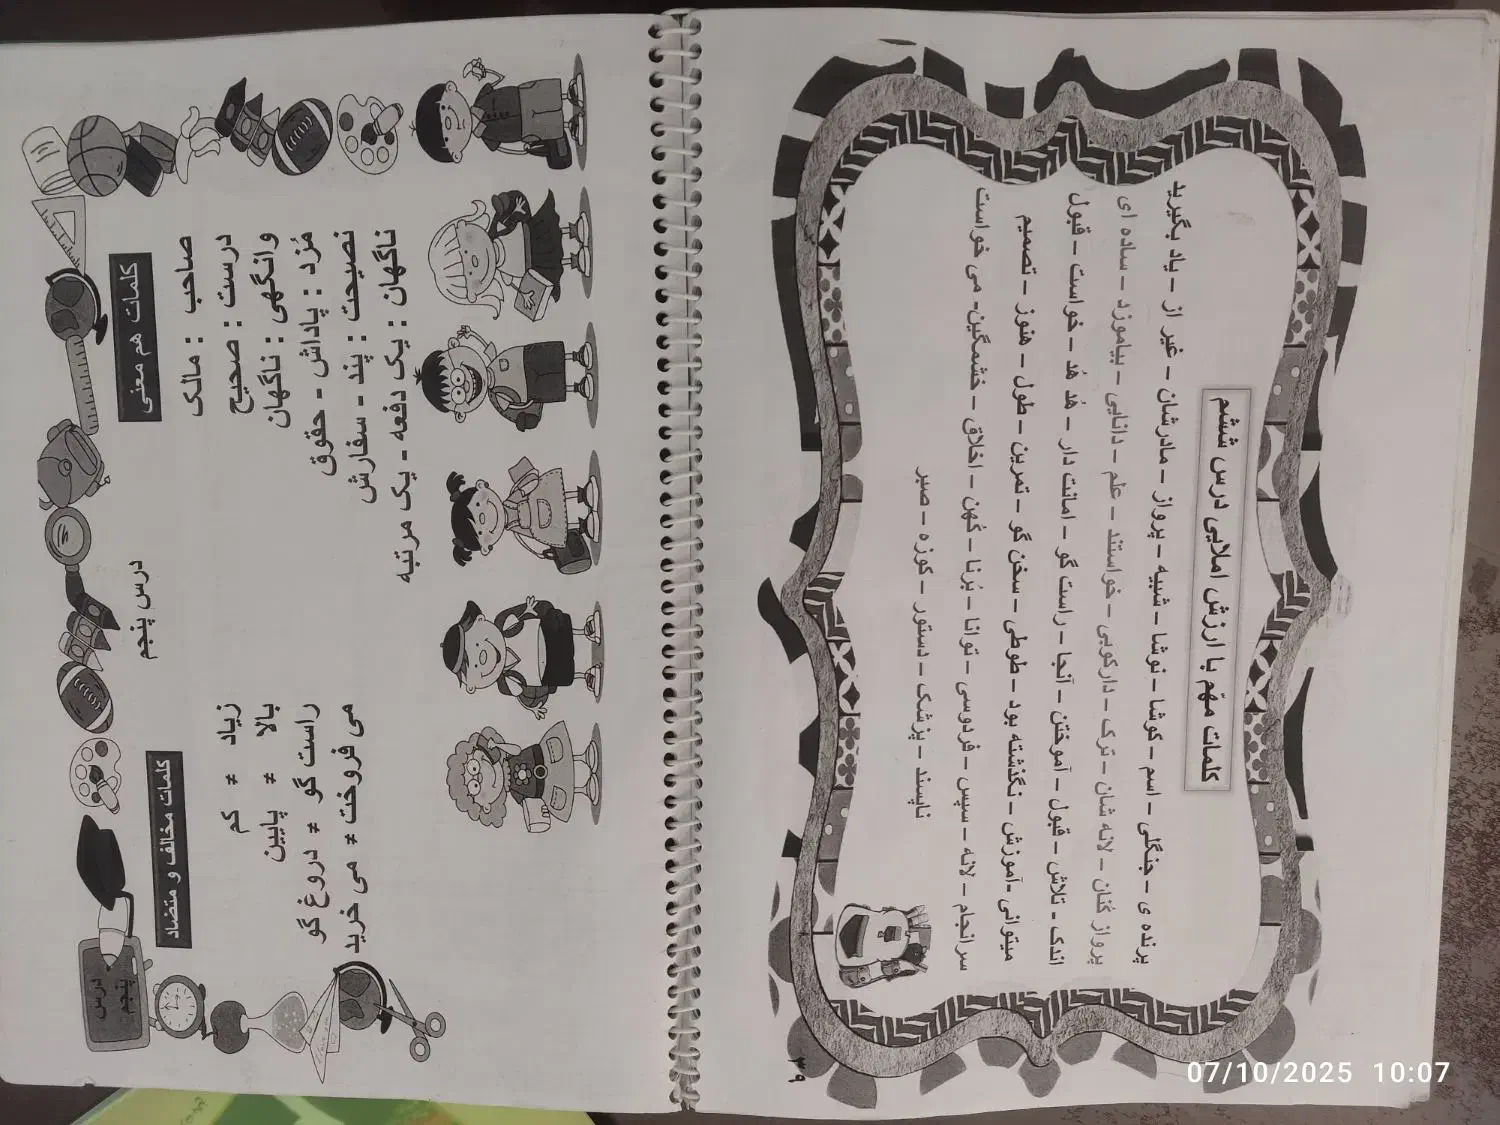 کلمات مهّم با ارزش املایی درس ششم
پرنده ی - جنگلی - اسم - کوشا - نوشا - شبیه - پرواز - مادرشان - غیر از - یاد بگیرید
پرواز کُنان - لانه شان - ترک - دارکوبی - خواستند - علم - دانایی - بیاموزد - ساده ای
اندک - تلاش - قبول - آموختن - آنجا - راست گو - امانت دار - هُد هُد - خواست - قبول
میتوانی - آموزش - نگذشته بود - طوطی - سخن گو - تمرین - طول - هنوز - تصمیم
سرانجام - لانه - سپس - فردوسی - توانا - بُرنا - کُهن - اخلاق - خشمگین - می خواست
ناپسند - پزشک - دستور - کوزه - صبر
۳۹
درس پنجم
درس
پنجم
کلمات هم معنی
صاحب : مالک
درست : صحیح
وانگهی : ناگهان
مُزد : پاداش - حقوق
نصیحت : پند - سفارش
ناگهان : یک دفعه - یک مرتبه
کلمات مخالف و متضاد
زیاد ≠ کم
بالا ≠ پایین
راست گو ≠ دروغ گو
می فروخت ≠ می خرید
07/10/2025 10:07